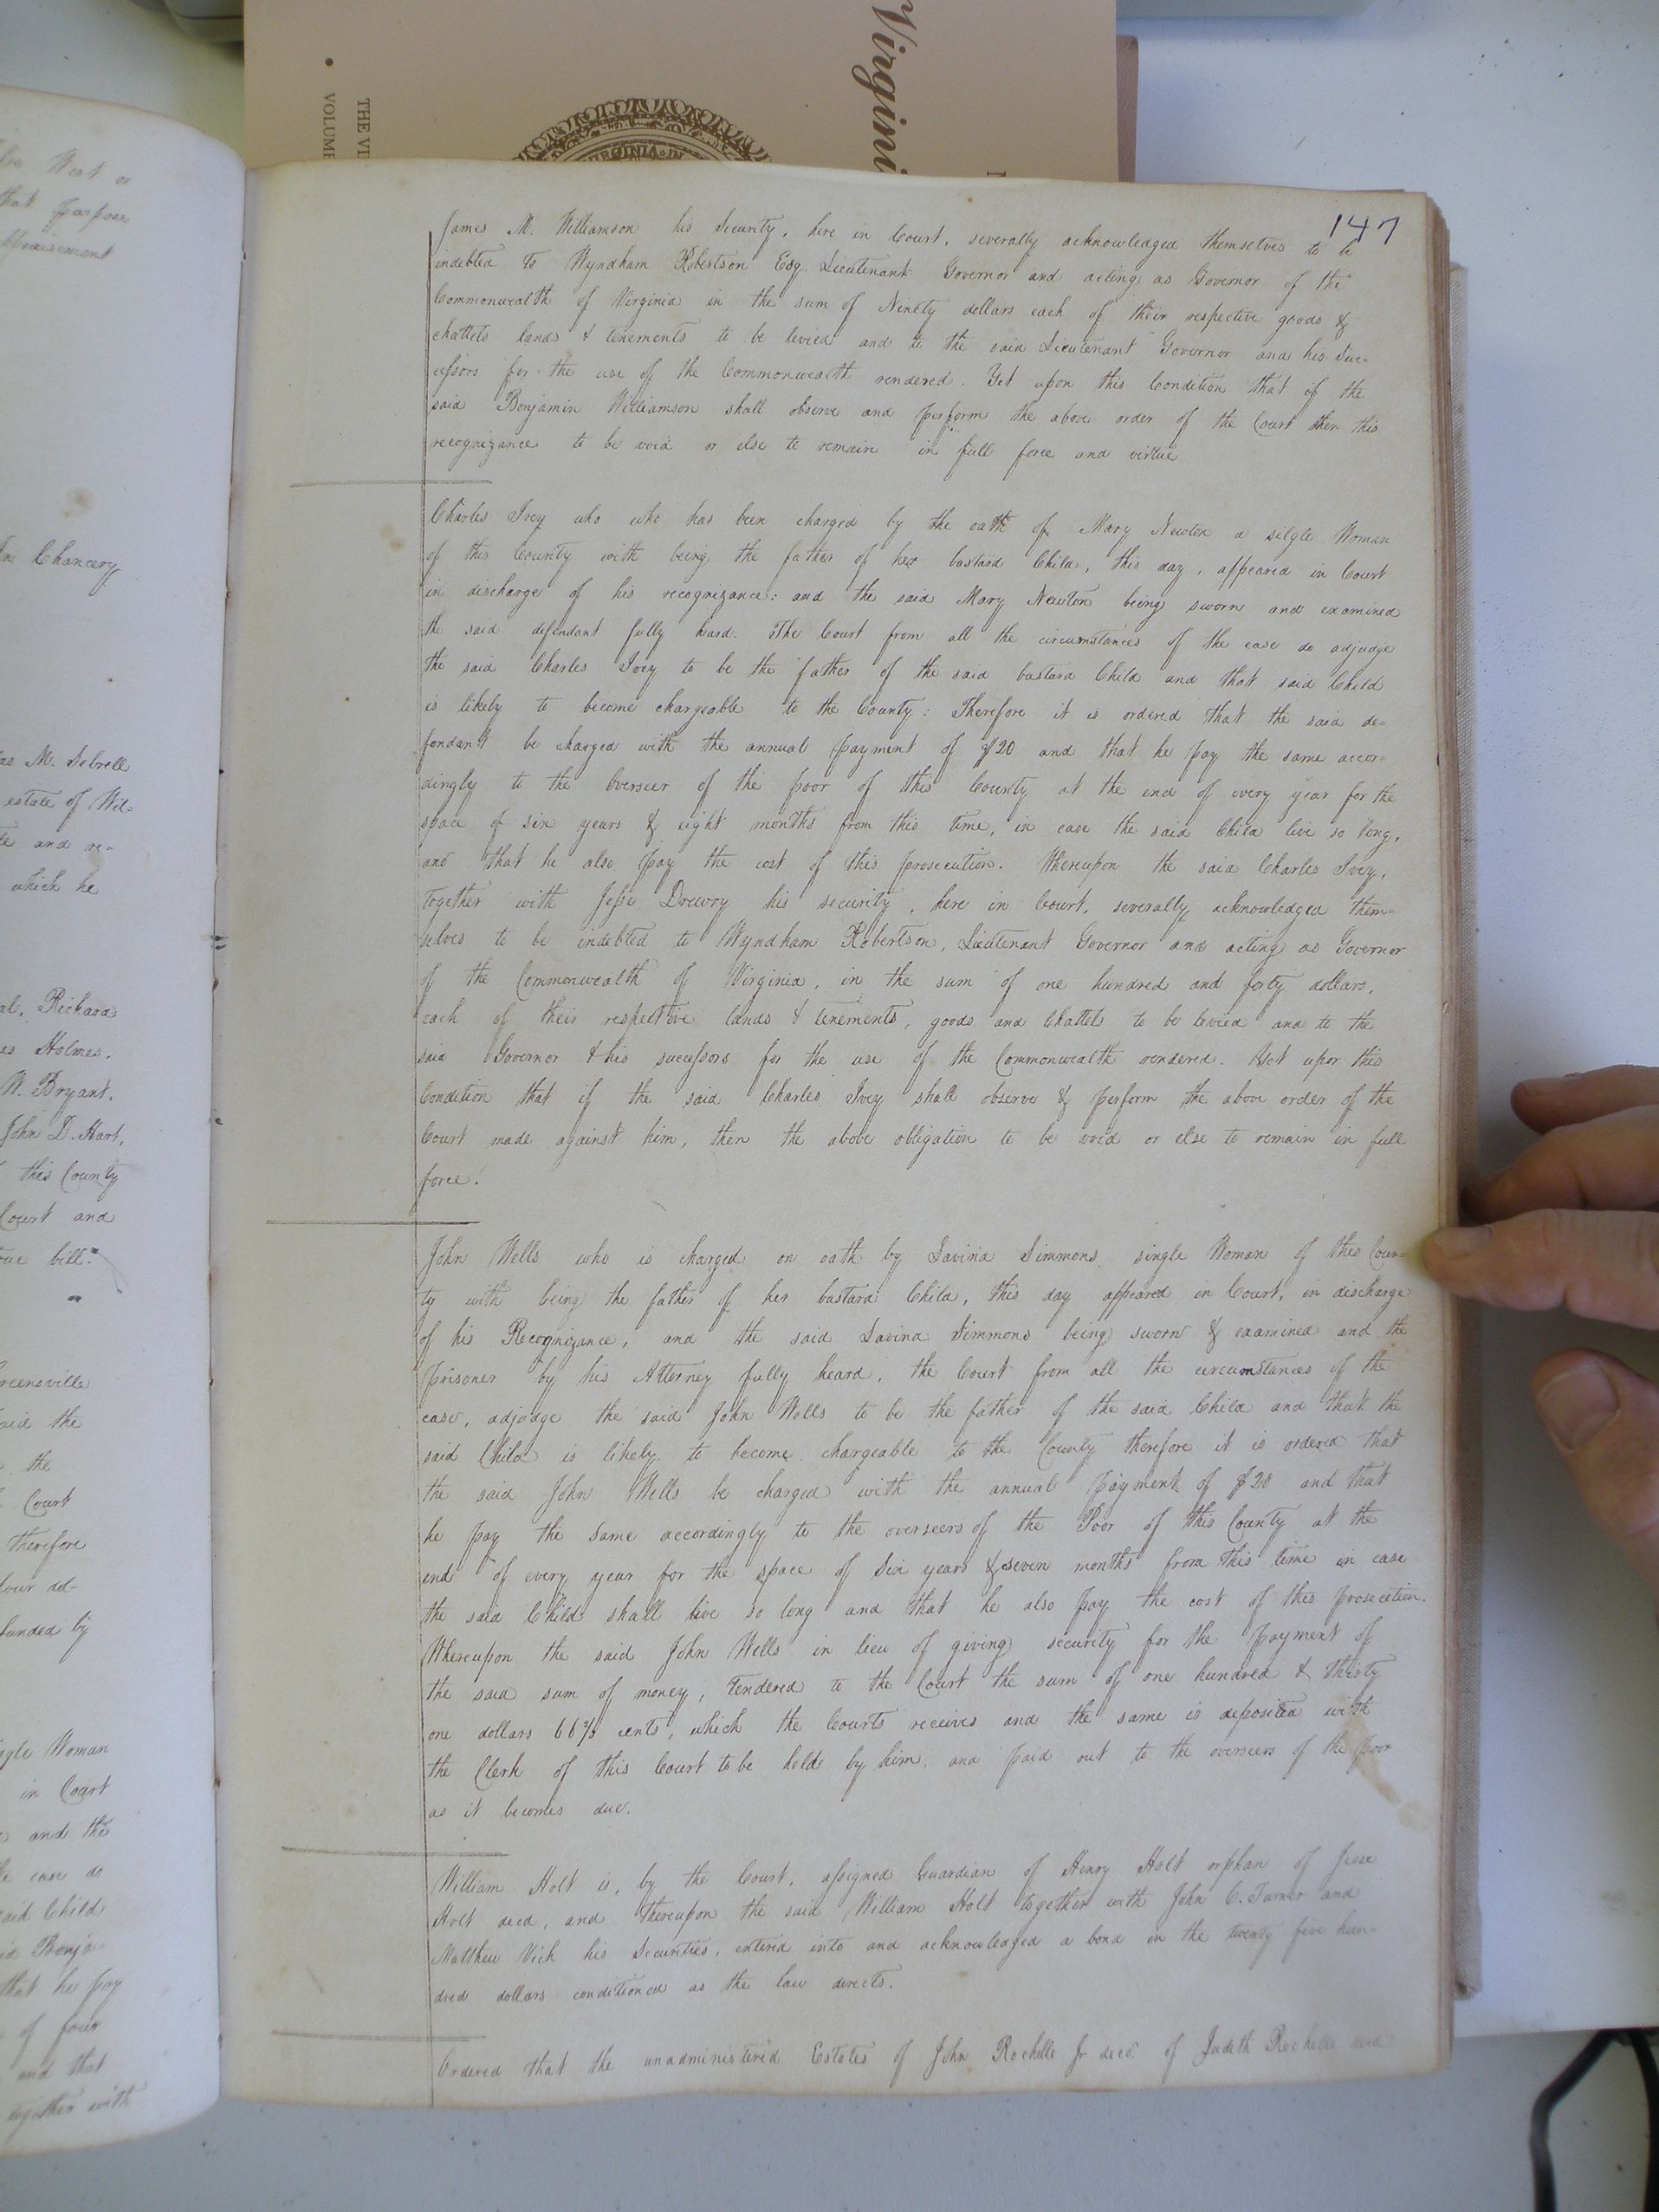 Virgini
THE VI
VOLUME
VIRGINIA
West or
that purpose
appraisement
In Chancery
as M. Sebrell
estate of Wil=
te and re=
which he
al, Richard
es Holmes,
W. Bryant,
John D. Hart,
this County
Court and
true bill.
reensville
aid the
the
Court
therefore
four
handed by
ngle Woman
in Court
and the
the case do
said Child
id Benja=
that he pay
of four
and that
together with
147
James M. Williamson his Security, here in Court, severally acknowledged themselves to be
indebted to Wyndham Robertson Esq. Lieutenant Governor and acting as Governor of the
Commonwealth of Virginia in the sum of Ninety dollars each of their respective goods &
chattels lands & tenements to be levied and to the said Lieutenant Governor and his Suc=
cessors for the use of the Commonwealth rendered. Yet upon this Condition that if the
said Benjamin Williamson shall observe and perform the above order of the Court then this
recognizance to be void or else to remain in full force and virtue
Charles Ivey who who has been charged by the oath of Mary Newton a silgle Woman
of this County with being the father of her bastard Child, this day, appeared in Court
in discharge of his recognizance: and the said Mary Newton being sworn and examined
the said defendant fully heard. The Court from all the circumstances of the case do adjudge
the said Charles Ivey to be the father of the said bastard Child and that said Child
is likely to become chargeable to the County: Therefore it is ordered that the said de=
fendant be charged with the annual payment of $20 and that he pay the same accor=
dingly to the Overseer of the poor of this County at the end of every year for the
space of six years & eight months from this time, in case the said Child live so long,
and that he also pay the cost of this prosecution. Whereupon the said Charles Ivey,
together with Jesse Drewry his security, here in Court, severally acknowledged them=
selves to be indebted to Wyndham Robertson, Lieutenant Governor and acting as Governor
of the Commonwealth of Virginia, in the sum of one hundred and forty dollars,
each of their respective lands & tenements, goods and Chattels to be levied and to the
said Governor & his successors for the use of the Commonwealth rendered. Yet upon this
Condition that if the said Charles Ivey shall observe & perform the above order of the
Court made against him, then the above obligation to be void or else to remain in full
force.
John Wells who is charged on oath by Lavina Simmons single Woman of this Coun=
ty with being the father of her bastard Child, this day appeared in Court, in discharge
of his Recognizance, and the said Lavina Simmons being sworn & examined and the
prisoner by his Attorney fully heard, the Court from all the circumstances of the
case, adjudge the said John Wells to be the father of the said Child and that the
said Child is likely to become chargeable to the County therefore it is ordered that
the said John Wells be charged with the annual payment of $20 and that
he pay the same accordingly to the overseers of the Poor of this County at the
end of every year for the space of Six years & seven months from this time in case
the said Child shall live so long and that he also pay the cost of this prosecution.
Whereupon the said John Wells in lieu of giving security for the payment of
the said sum of money, tendered to the Court the sum of one hundred & thirty
one dollars 66 2/3 cents, which the Courts receives and the same is deposited with
the Clerk of this Court to be held by him and paid out to the overseers of the poor
as it becomes due.
William Holt is, by the Court, assigned Guardian of Henry Holt orphan of Jesse
Holt decd, and thereupon the said William Holt together with John C. Turner and
Matthew Vick his Securities, entered into and acknowledged a bond in the twenty five hun=
dred dollars conditioned as the law directs.
Ordered that the unadministered Estates of John Rochelle Jr decd. of Judith Rochelle decd